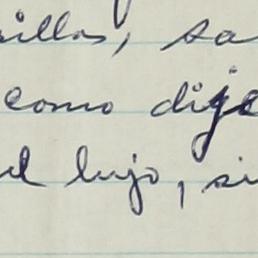 illas, sa
como dije
el lujo, si